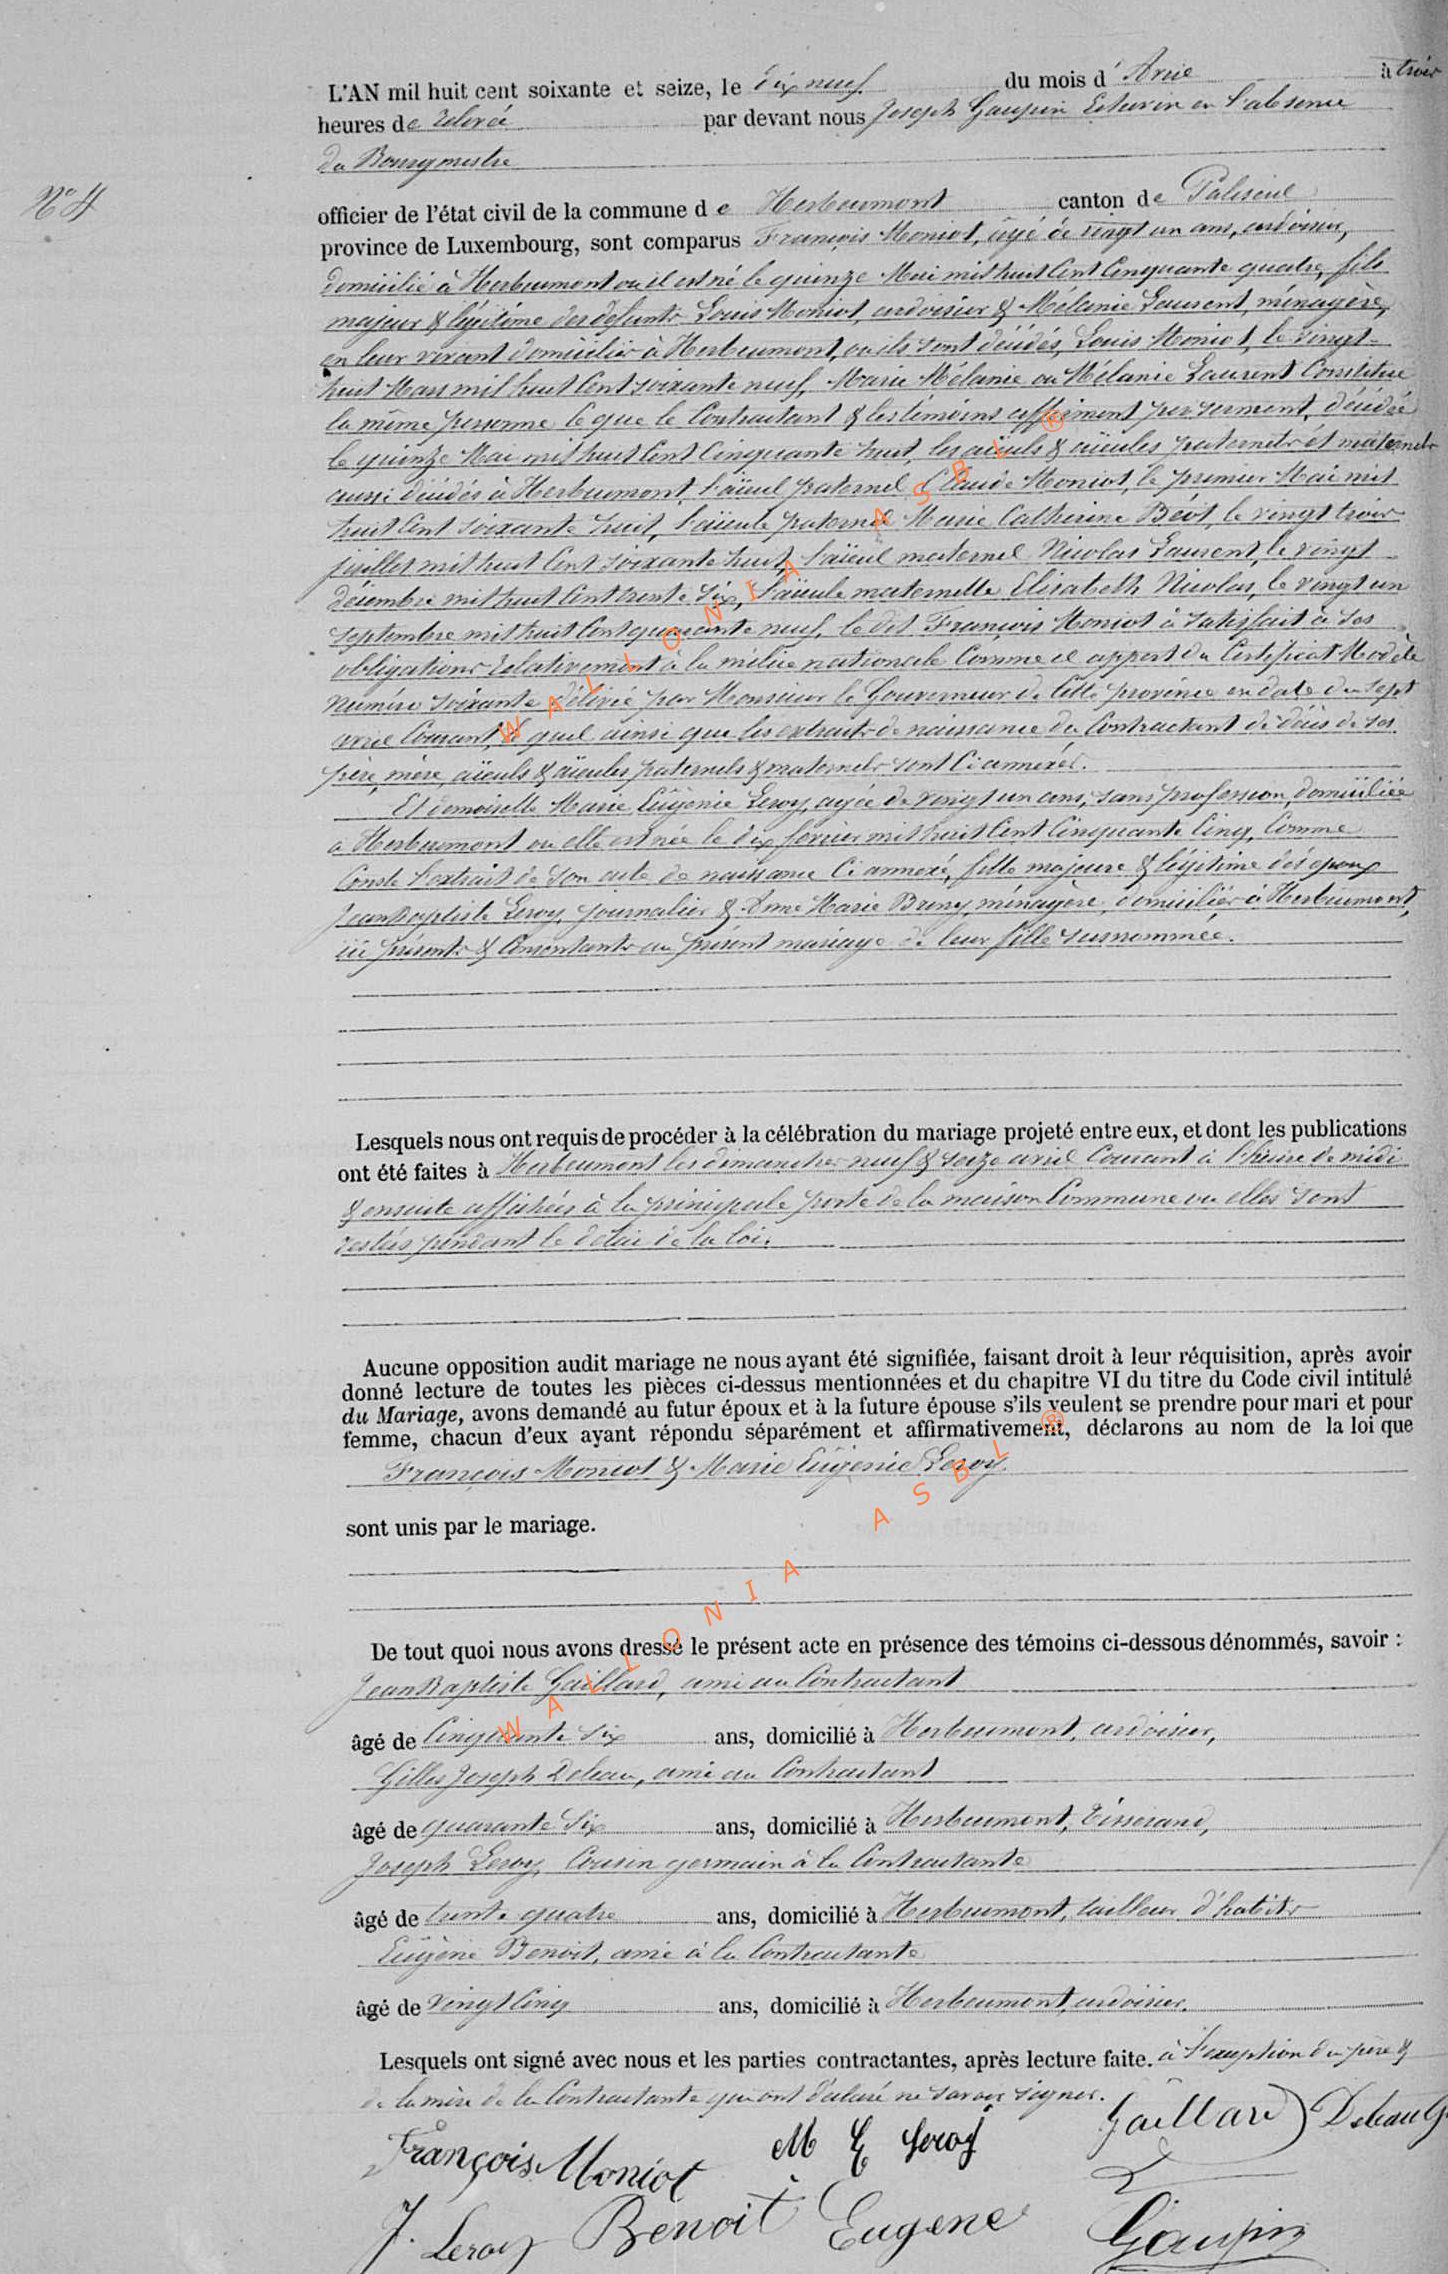 L'AN mil huit cent soixante et seize, le dix neuf du mois d'Avril à trois
heures de relevée par devant nous Joseph Gaupin Echevin en l'absence
du Bourgmestre
N° 4
officier de l'état civil de la commune de Herbeumont canton de Paliseul
province de Luxembourg, sont comparus François Moniot, âgé de vingt un ans, ardoisier,
domicilié à Herbeumont où il est né le quinze Mai mil huit Cent Cinquante quatre, fils
majeur & légitime des défunts Louis Moniot, ardoisier & Mélanie Laurent, ménagère,
en leur vivant domiciliés à Herbeumont, où ils sont décédés, Louis Moniot, le vingt-
huit Mars mil huit Cent soixante neuf, Marie Mélanie ou Mélanie Laurent Constitue
la même personne ce que le Contractant & les témoins affirment par serment, décédée
le quinze Mai mil huit Cent Cinquante huit, les aïeuls & aïeules paternels et maternels
aussi décédés à Herbeumont, l'aïeul paternel Claude Moniot, le premier Mai mil
huit Cent soixante huit, l'aïeule paternel Marie Catherine Béot, le vingt trois
juillet mil huit Cent soixante huit, l'aïeul maternel Nicolas Laurent, le vingt
décembre mil huit Cent trente six, l'aïeule maternelle Elisabeth Nicolas, le vingt un
septembre mil huit Cent quarante neuf, le dit François Moniot à satisfait à ses
obligations relativement à la milice nationale Comme il appert du Certificat Modèle
numéro soixante délivré par Monsieur le Gouverneur de Cette province en date du sept
avril Courant, lequel ainsi que les extraits de naissance du Contractant de décès de ses
père, mère, aïeuls & aïeules paternels & maternels sont Ci annexés.
Et demoiselle Marie Eugénie Leroy, agée de vingt un ans, sans profession, domiciliée
à Herbeumont ou elle est née le dix février mil huit Cent Cinquante Cinq, Comme
Conste l'extrait de son acte de naissance Ci annexé, fille majeure & légitime des époux
Jean Baptiste Leroy, journalier & Anne Marie Briny, ménagère, domiciliés à Herbeumont,
ici présents & Consentants au présent mariage de leur fille susnommée.
Lesquels nous ont requis de procéder à la célébration du mariage projeté entre eux, et dont les publications
ont été faites à Herbeumont les dimanches neuf & seize avril Courant à l'heure de midi
& ensuite affichées à la principale porte de la maison Commune ou elles sont
restées pendant le délai de la loi.
Aucune opposition audit mariage ne nous ayant été signifiée, faisant droit à leur réquisition, après avoir
donné lecture de toutes les pièces ci-dessus mentionnées et du chapitre VI du titre du Code civil intitulé
du Mariage, avons demandé au futur époux et à la future épouse s'ils veulent se prendre pour mari et pour
femme, chacun d'eux ayant répondu séparément et affirmativement, déclarons au nom de la loi que
François Moniot & Marie Eugénie Leroy
sont unis par le mariage.
De tout quoi nous avons dressé le présent acte en présence des témoins ci-dessous dénommés, savoir :
Jean Baptiste Gaillard, ami au Contractant
âgé de Cinquante six ans, domicilié à Herbeumont, ardoisier,
Gilles Joseph Deleau, ami au Contractant
âgé de quarante six ans, domicilié à Herbeumont, tisserand,
Joseph Leroy, Cousin germain à la Contractante
âgé de trente quatre ans, domicilié à Herbeumont, tailleur d'habits
Eugène Benoit, ami à la Contractante
âgé de vingt Cinq ans, domicilié à Herbeumont, ardoisier.
Lesquels ont signé avec nous et les parties contractantes, après lecture faite. à l'exception du père &
de la mère de la Contractante qui ont déclaré ne savoir signer.
François Moniot M E Leroy Gaillard Deleau G
J. Leroy Benoit Eugene Gaupin
WALLONIA ASBL ®
WALLONIA ASBL ®